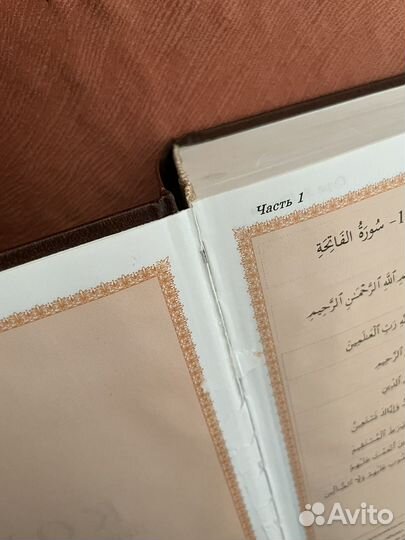 Часть 1
1- سُورَةُ الفَاتِحَةِ
ٱللَّهِ ٱلرَّحْمَٰنِ ٱلرَّحِيمِ
رَبِّ ٱلْعَٰلَمِينَ
ٱلرَّحِيمِ
ٱلدِّينِ
وَإِيَّاكَ نَسْتَعِينُ
ٱلْمُسْتَقِيمَ
أَنْعَمْتَ عَلَيْهِمْ
عَلَيْهِمْ وَلَا ٱلضَّآلِّينَ
Avito